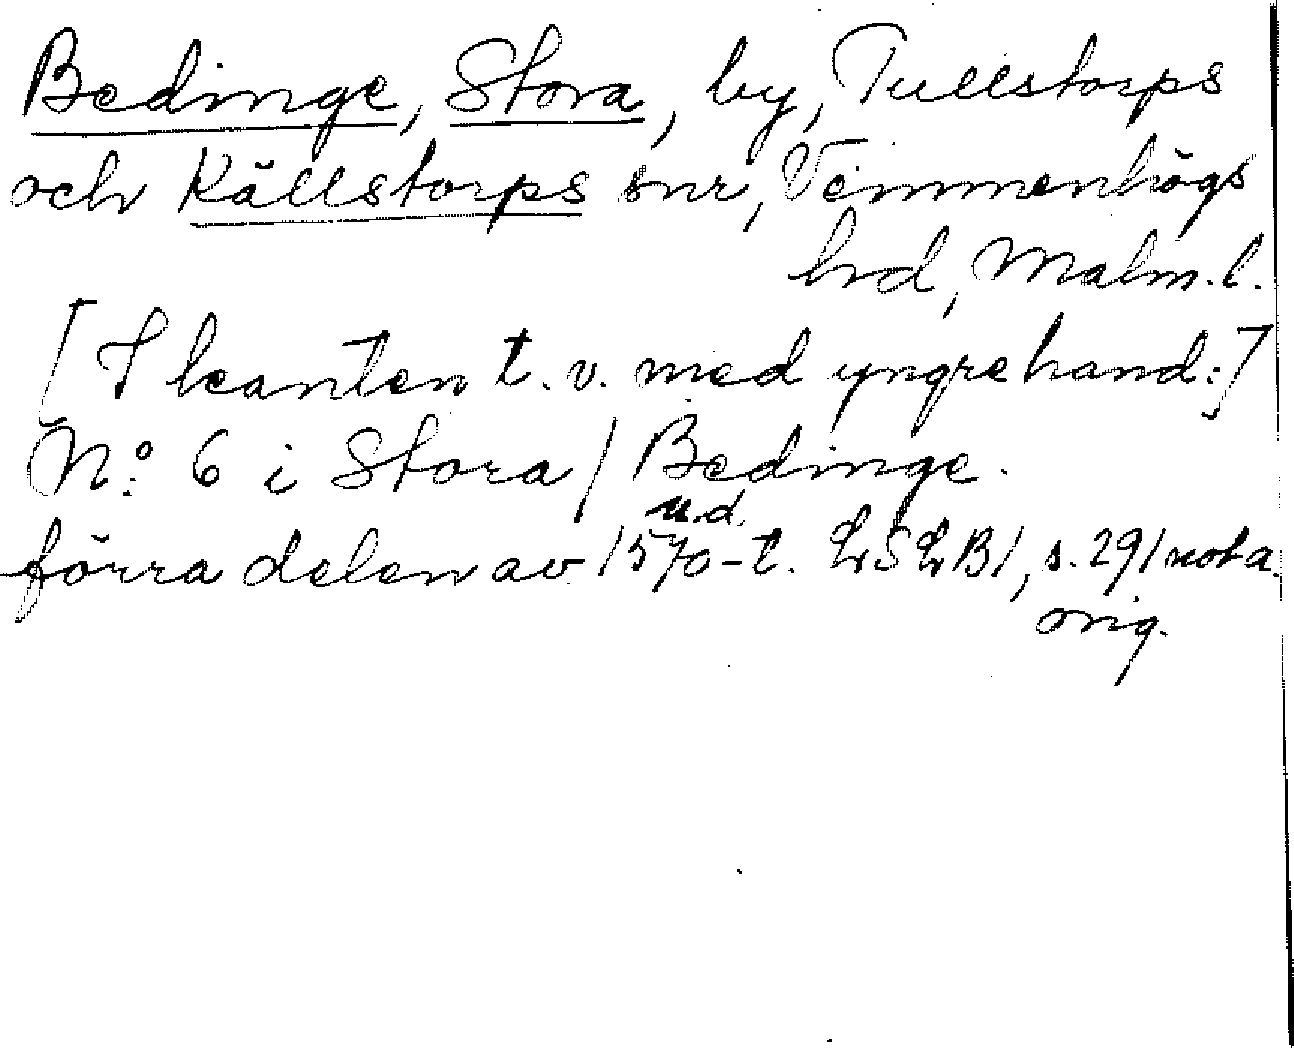 Bedinge, Stora, by, Tullstorps
och Källstorps snr, Vemmenhögs
hd, Malm.l.
[I kanten t. v. med yngre hand:]
N:o 6 i Stora / Bedinge.
u.d.
förra delen av 1570-t. LSLB1, s. 291 nota.
orig.